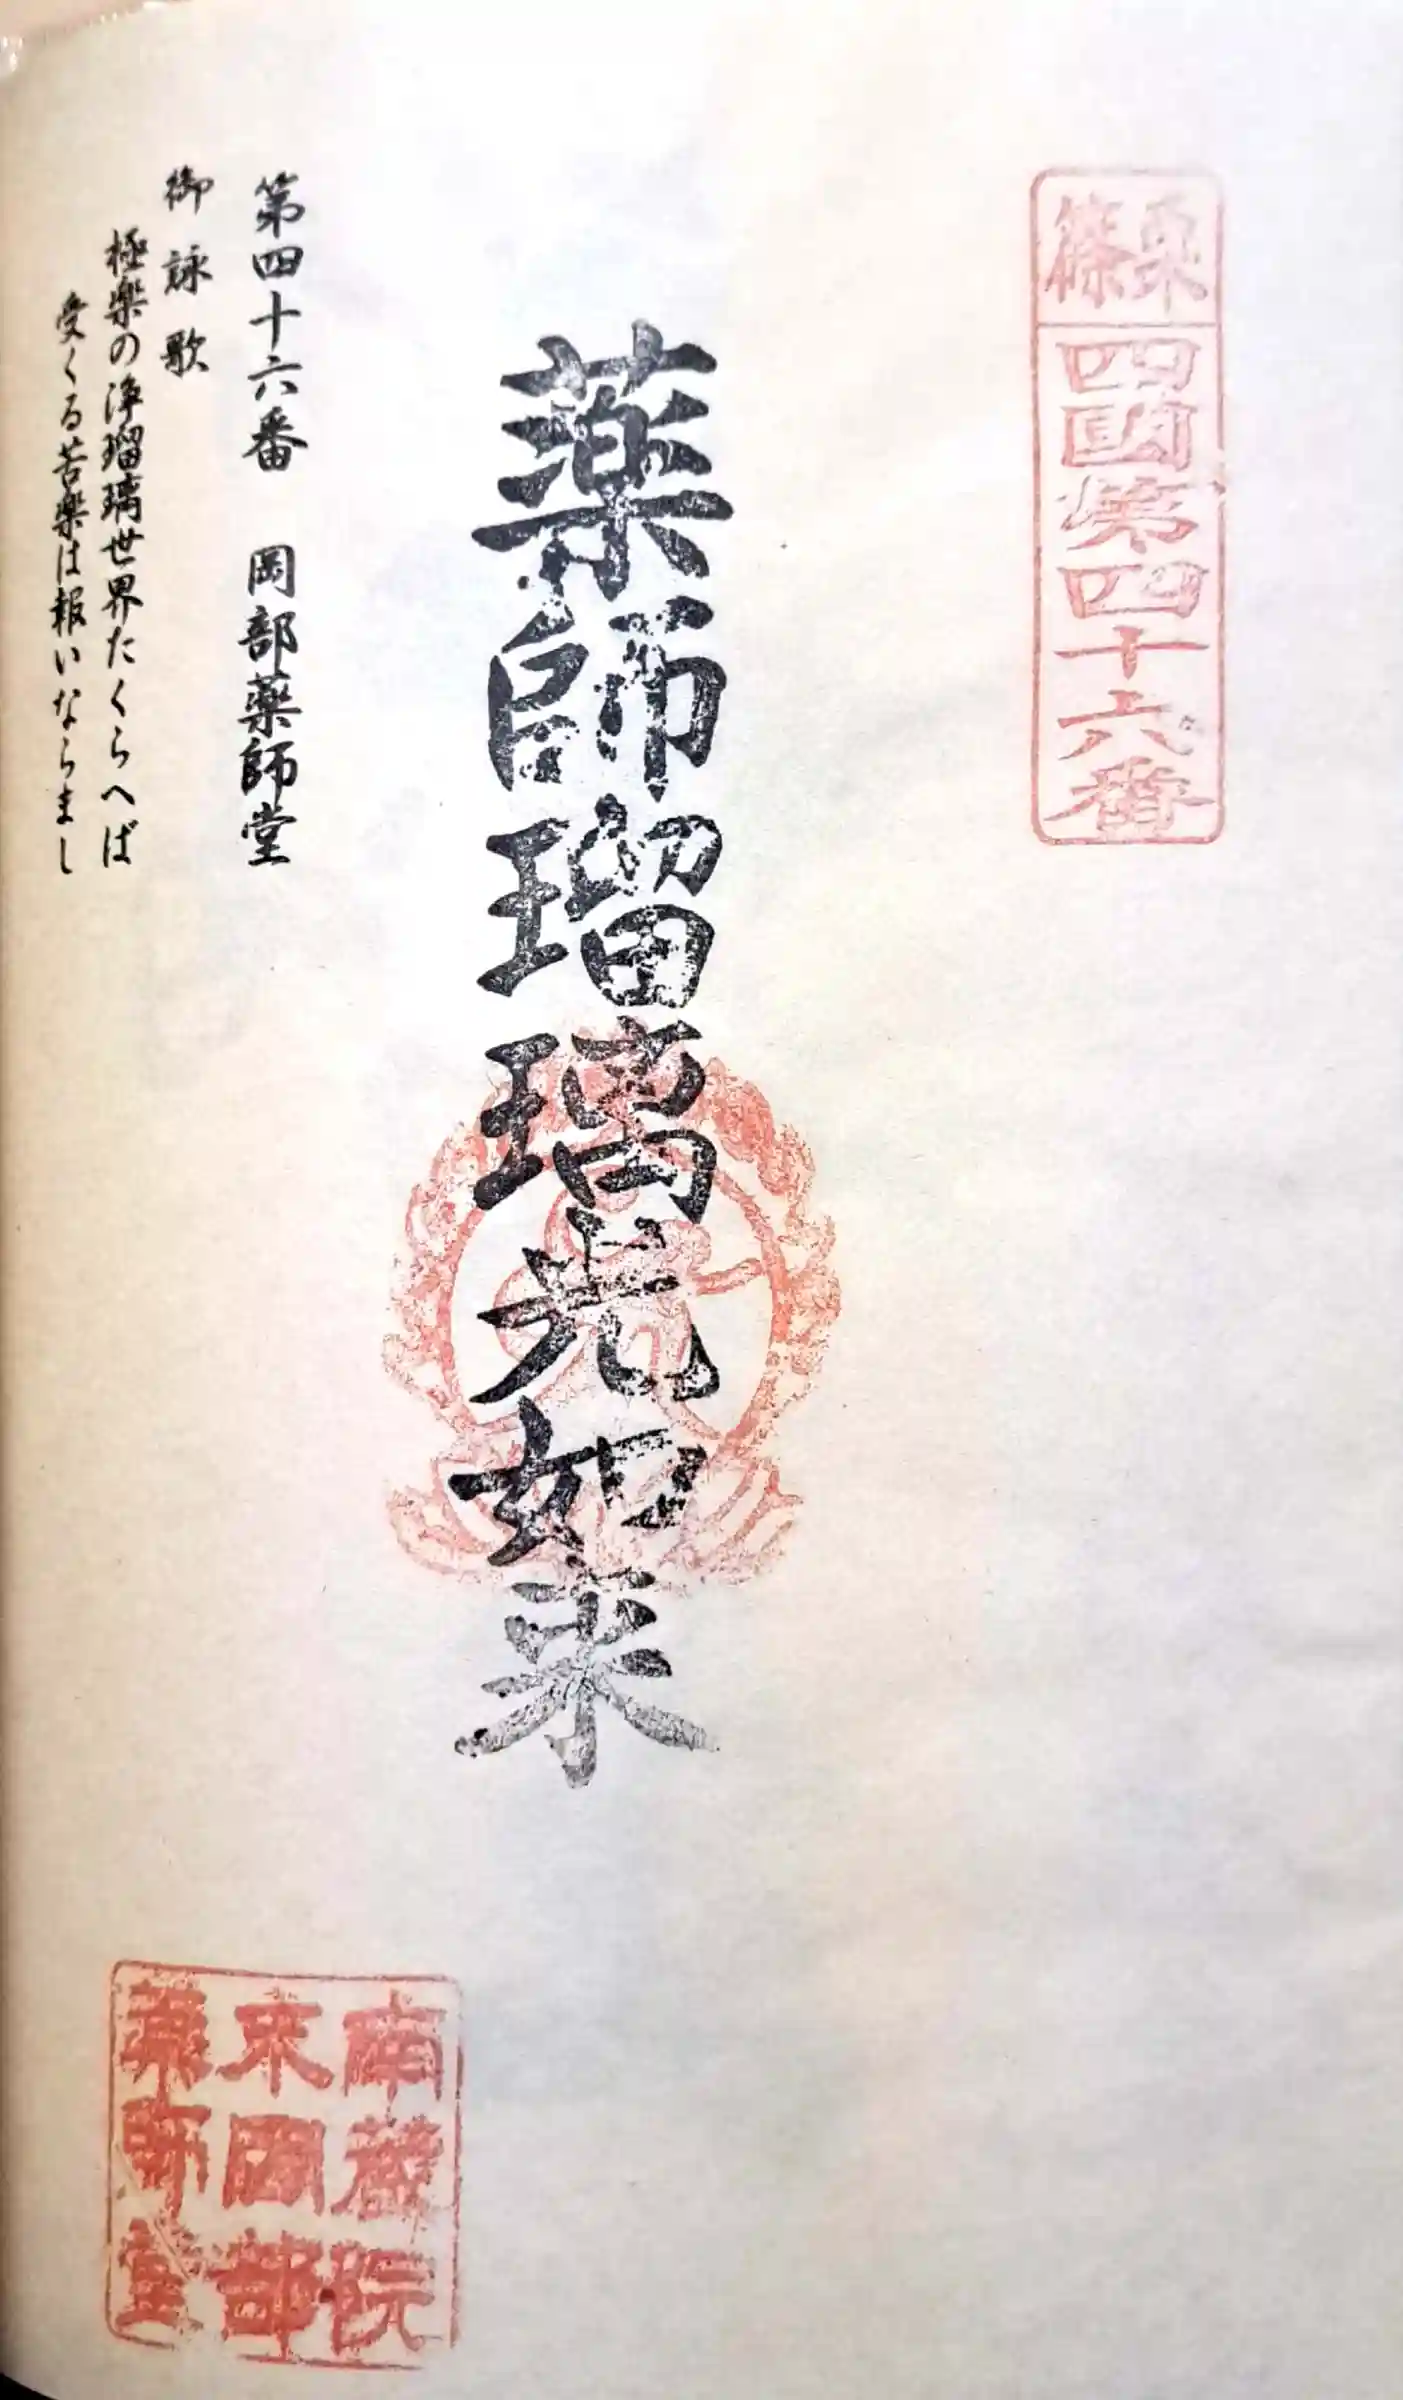 篠栗
四國第四十六番
薬師瑠璃光如来
第四十六番 岡部薬師堂
御詠歌
極楽の浄瑠璃世界たくらへば
受くる苦楽は報いならまし
南蔵院
末岡部
薬師堂